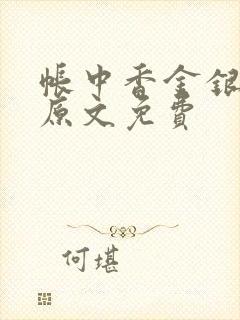 帐中香金银
原文免费
何堪